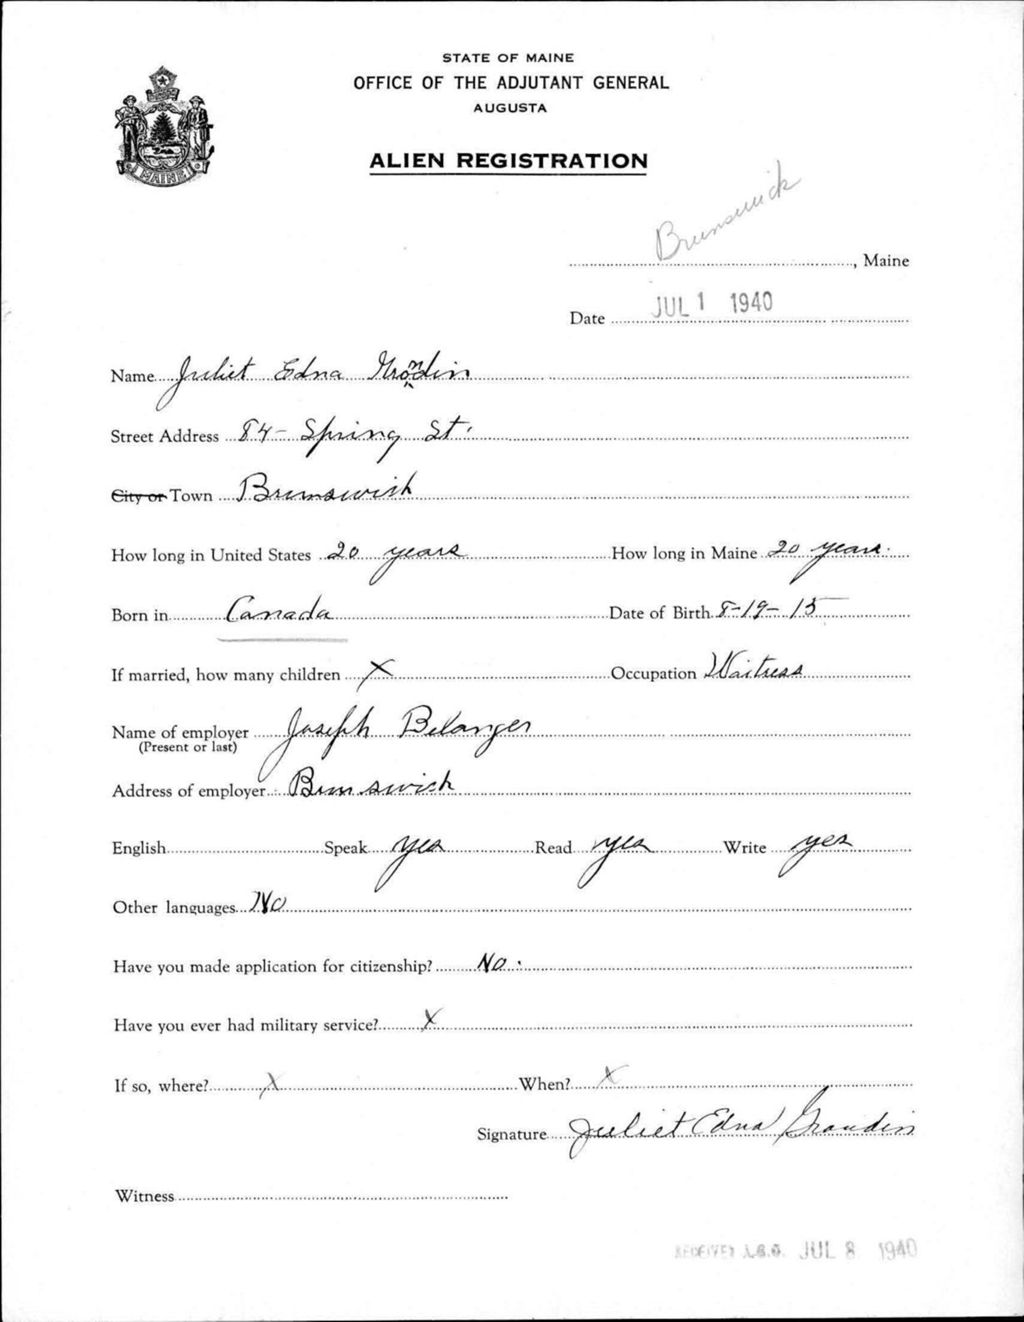 STATE OF MAINE
OFFICE OF THE ADJUTANT GENERAL
AUGUSTA
ALIEN REGISTRATION
MAINE
Brunswick, Maine
Date JUL 1 1940
Name Juliet Edna
Street Address 84- Spring St.
City or Town Brunswick
How long in United States 20 years How long in Maine 20 years.
Born in Canada Date of Birth 8-19-15
If married, how many children X Occupation Waitress
Name of employer Joseph Belanger
(Present or last)
Address of employer Brunswick
English Speak yes Read yes Write yes
Other languages No
Have you made application for citizenship? No.
Have you ever had military service? X
If so, where? X When? X
Signature Juliet Edna Graudin
Witness
RECEIVED A.G.O. JUL 8 1940